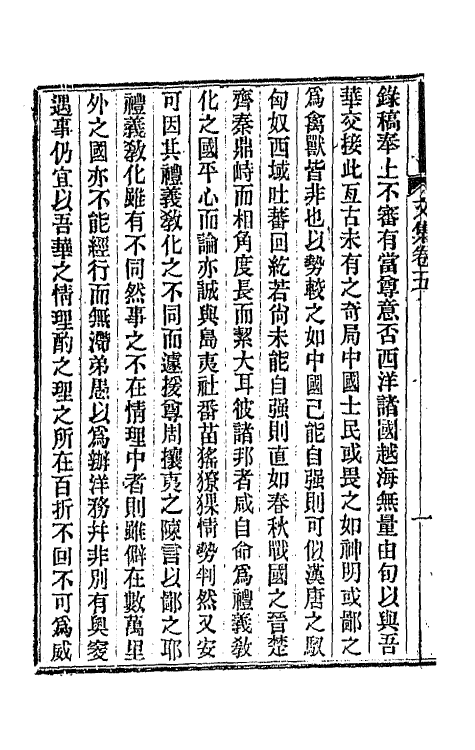 文集卷五
一
錄稿奉上不審有當尊意否西洋諸國越海無量由旬以與吾
華交接此亙古未有之奇局中國士民或畏之如神明或鄙之
爲禽獸皆非也以勢較之如中國已能自强則可似漢唐之馭
匈奴西域吐蕃回紇若尙未能自强則直如春秋戰國之晉楚
齊秦鼎峙而相角度長而絜大耳彼諸邦者咸自命爲禮義敎
化之國平心而論亦誠與島夷社番苗猺獠猓情勢判然又安
可因其禮義敎化之不同而遽援尊周攘夷之陳言以鄙之耶
禮義敎化雖有不同然事之不在情理中者則雖僻在數萬里
外之國亦不能經行而無滯弟愚以爲辦洋務幷非別有奧窔
遇事仍宜以吾華之情理酌之理之所在百折不回不可爲威